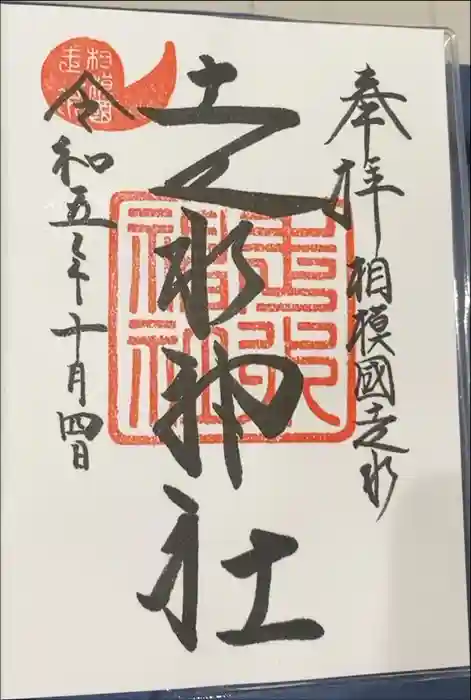 奉拝 相模國走水
走水神社
令和五年十月四日
相模國
走水
走水
神社